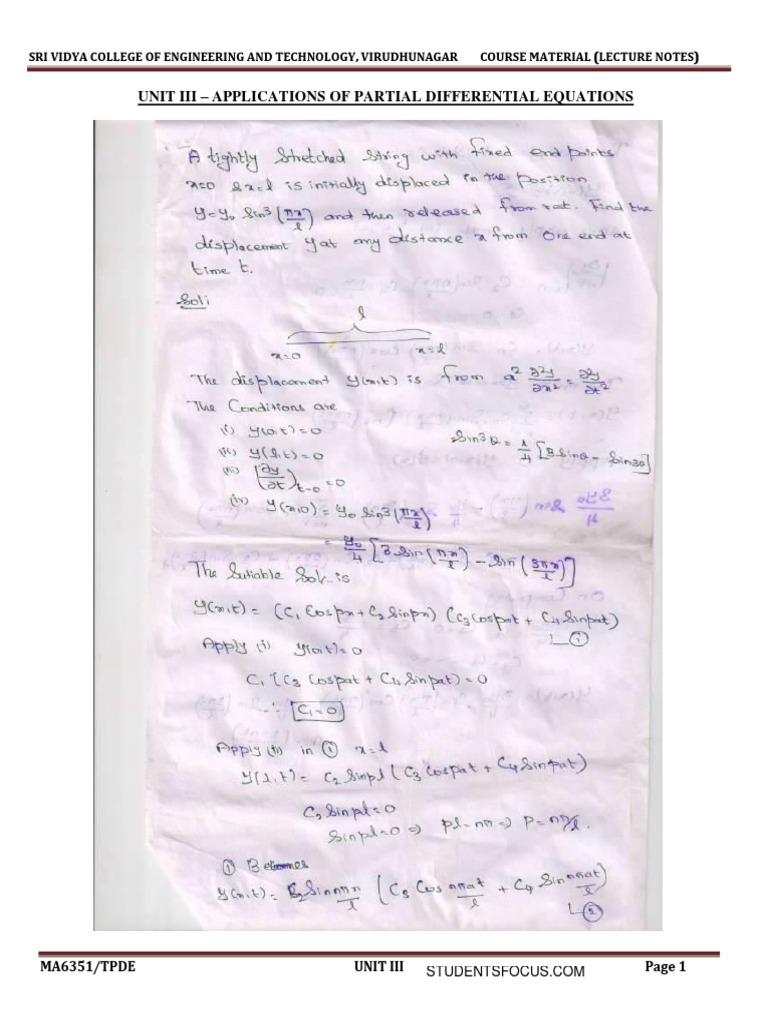 SRI VIDYA COLLEGE OF ENGINEERING AND TECHNOLOGY, VIRUDHUNAGAR COURSE MATERIAL (LECTURE NOTES)
UNIT III – APPLICATIONS OF PARTIAL DIFFERENTIAL EQUATIONS
A tightly stretched string with fixed end points
x=0 & x=l is initially displaced in the position
y=y₀ sin³(πx/l) and then released from rest. Find the
displacement y at any distance x from one end at
time t.
Sol:
l
x=0 x=l
The displacement y(x,t) is from a² ∂²y/∂x² = ∂²y/∂t²
The Conditions are
(i) y(0,t)=0
sin³θ = 1/4 [3 sinθ - sin3θ]
(ii) y(l,t)=0
(iii) (∂y/∂t)t=0 =0
(iv) y(x,0) = y₀ sin³(πx/l)
= y₀/4 [3 sin(πx/l) - sin(3πx/l)]
The Sutiable Sol. is
y(x,t) = (C₁ cospx + C₂ sinpx) (C₃ cospat + C₄ sinpat)
①
Apply (i) y(0,t)=0
C₁ [C₃ cospat + C₄ sinpat) = 0
∴ C₁=0
Apply (ii) in ① x=l
y(l,t) = C₂ sinpl (C₃ cospat + C₄ sinpat)
C₂ sinpl=0
sinpl=0 ⇒ pl=nπ ⇒ P=nπ/l.
① Becomes
y(x,t) = C₂ sin nπx/l (C₃ cos nπat/l + C₄ sin nπat/l)
②
MA6351/TPDE UNIT III STUDENTSFOCUS.COM Page 1